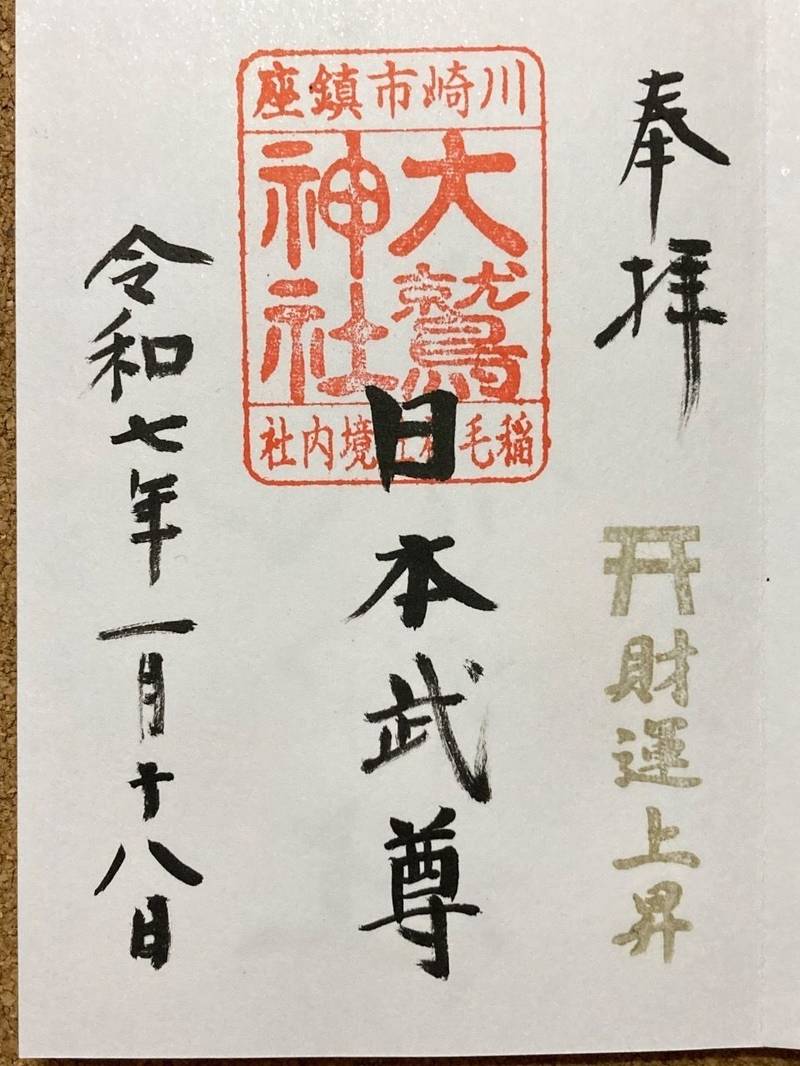 奉拝
財運上昇
川崎市鎮座
大鷲
神社
稲毛神社境内社
日本武尊
令和七年一月十八日